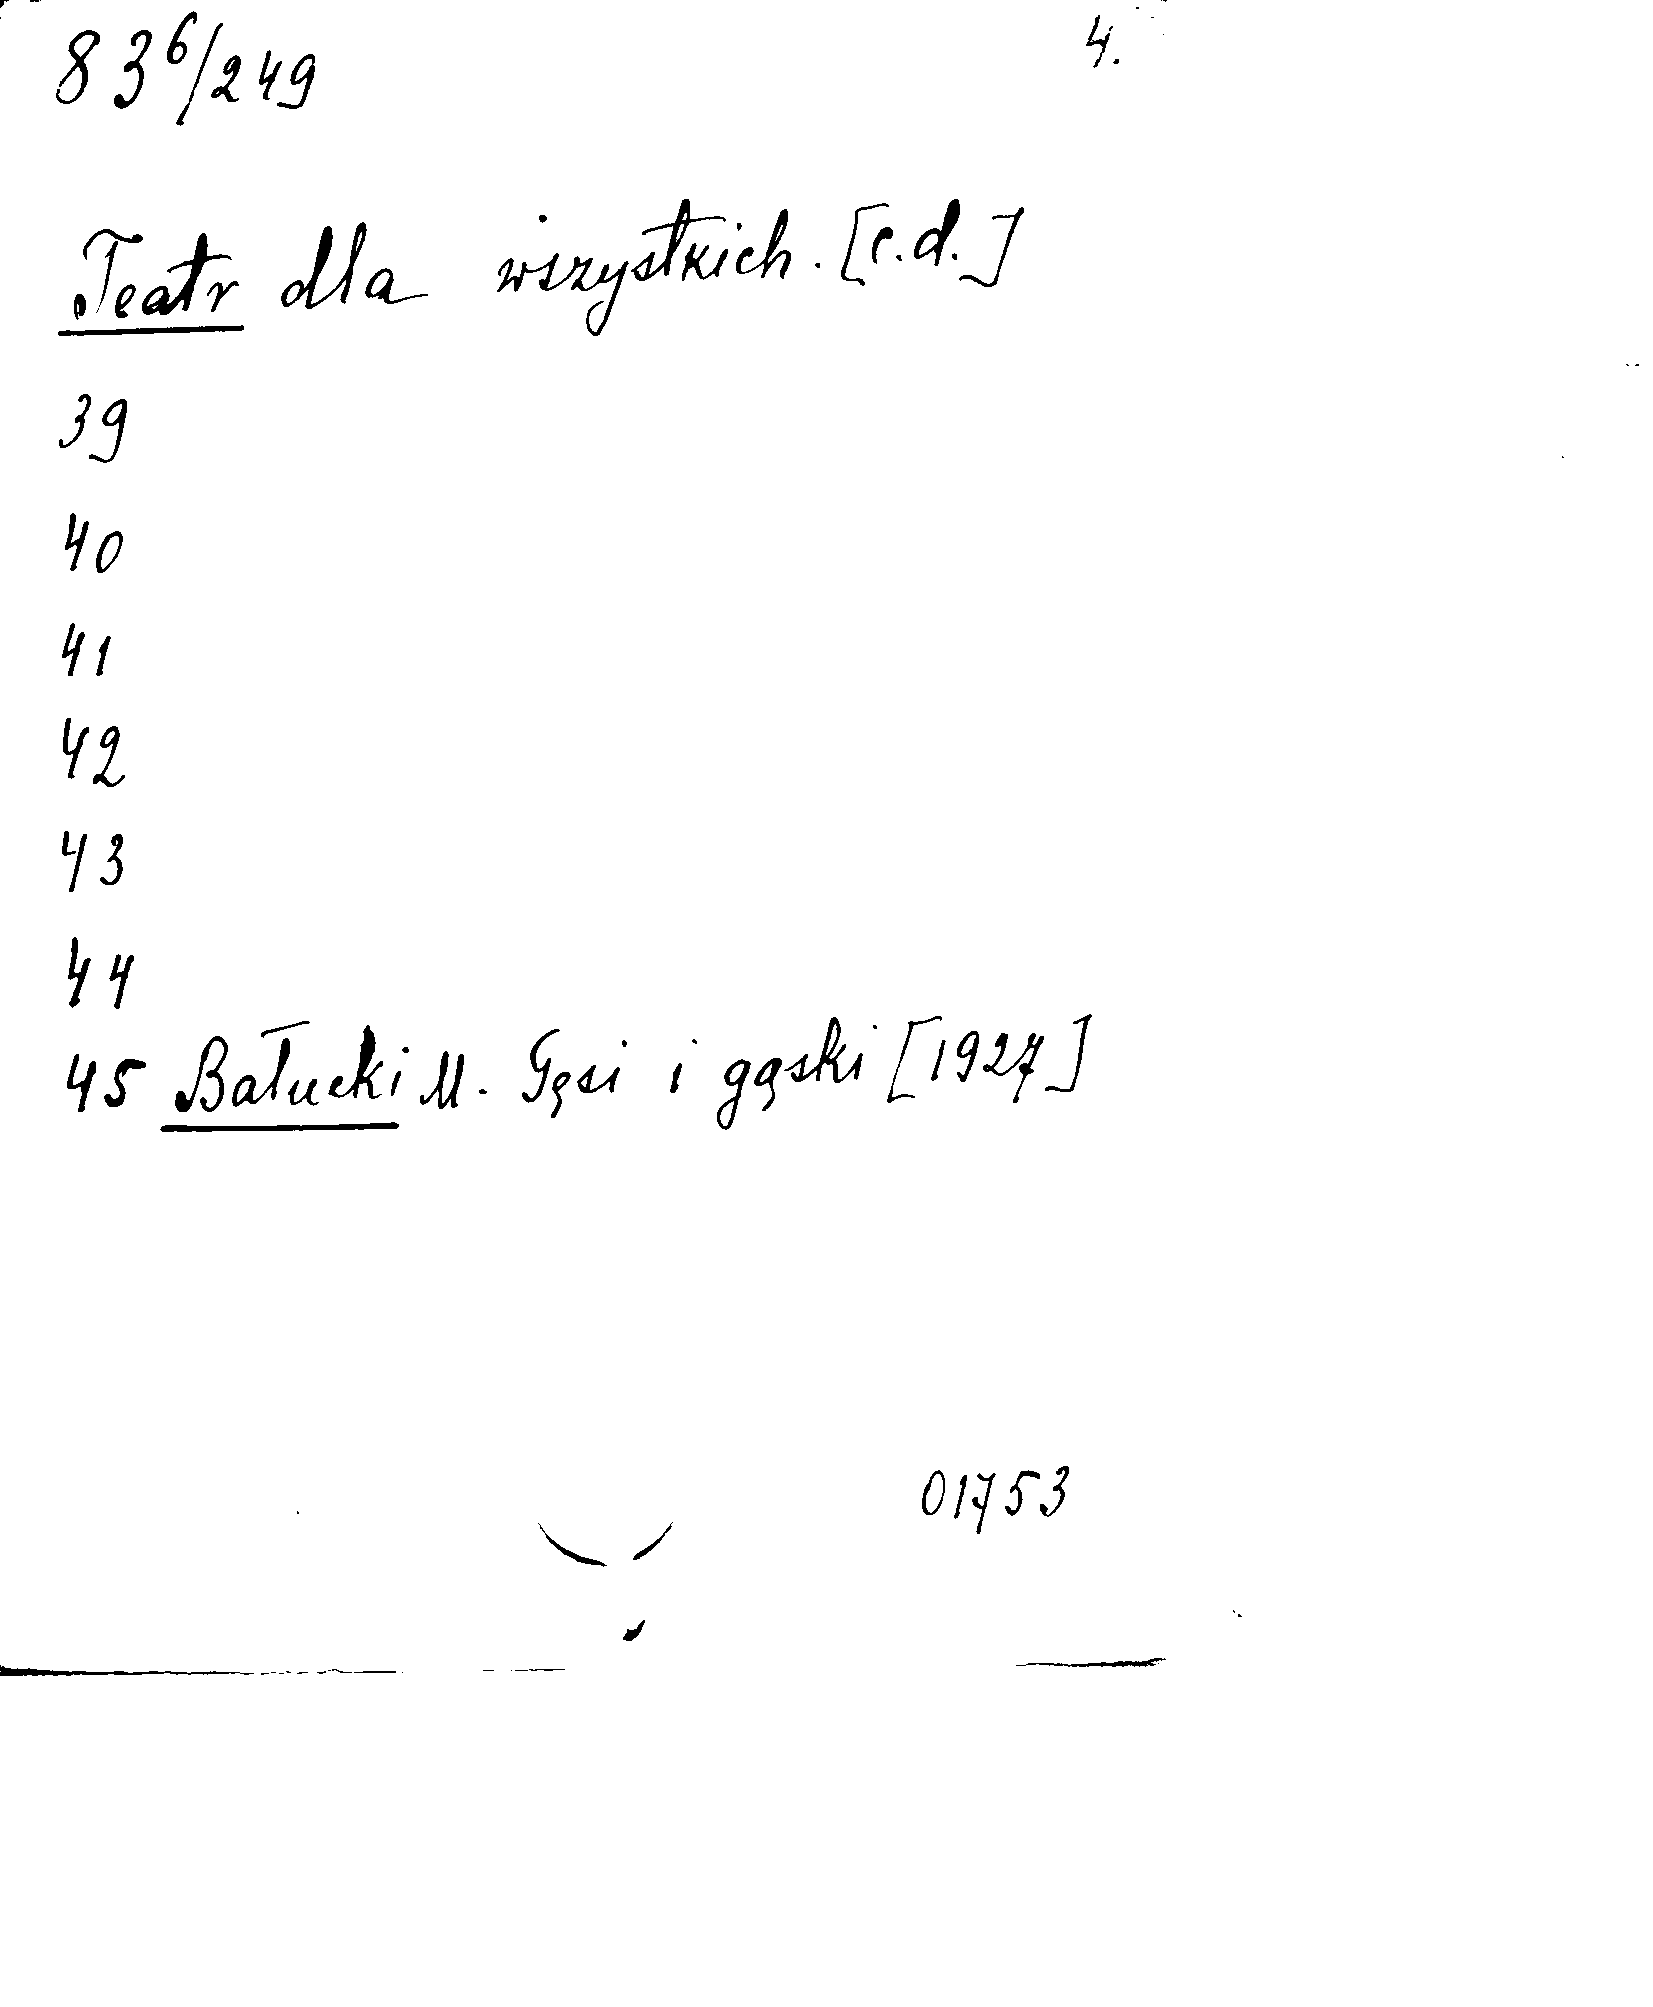 83⁶/249
4.
Teatr dla wszystkich. [c.d.]
39
40
41
42
43
44
45 Bałucki M. Gęsi i gąski [1927]
01753